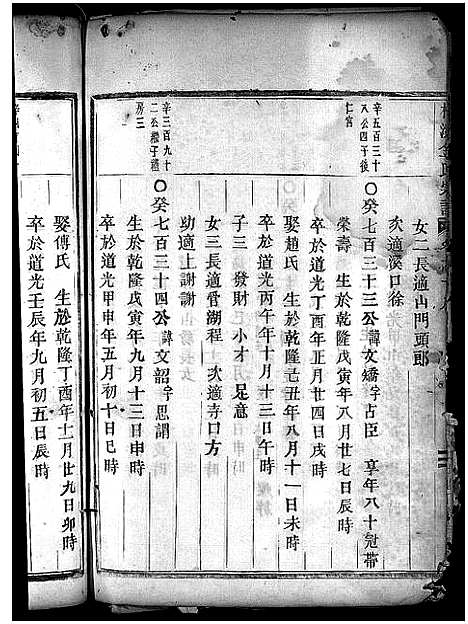 女二長適山門頭郎
次適溪口徐
辛五百三十
八公四子後
仁宫
〇癸七百三十三公諱文矯字占臣 享年八十冠帶
榮壽 生於乾隆戊寅年八月廿七日辰時
卒於道光丁酉年正月廿四日戌時
娶趙氏 生於乾隆己丑年八月十一日未時
卒於道光丙午年十月十三日午時
子三 發財 小才 足意
女三長適管湖程 次適寺口方
幼適上謝謝
辛三百九十
二公
房三
〇癸七百三十四公諱文韶字思謂
生於乾隆戊寅年九月十三日申時
卒於道光甲申年五月初十日巳時
娶傅氏 生於乾隆丁酉年十二月廿九日卯時
卒於道光壬辰年九月初五日辰時